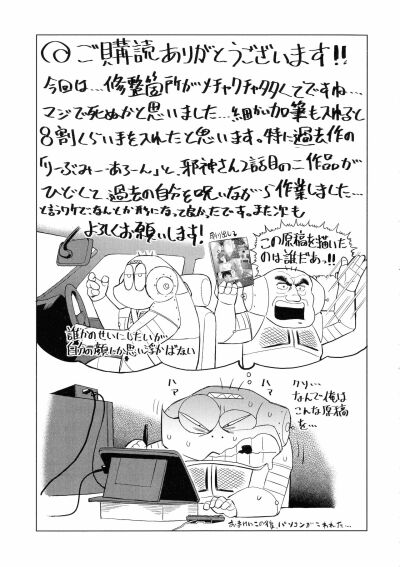 ご購読ありがとうございます!!
今回は…修整箇所がメチャクチャ多くてですね…
マジで死ぬかと思いました…細かい加筆も入れると
8割くらい手を入れたと思います。特に過去作の
「りーぶみーあろーん」と、邪神さん2話目の二作品が
ひどくして過去の自分を呪いながら作業しました…
と言うワケで、なんとか形になって良かったです。また次も
よろしくお願いします!
この原稿を描いた
のは誰だあっ!!
誰かのせいにしたいが
自分の顔しか思い浮かばない
ハァ
ハァ
クソ…
なんで俺は
こんな原稿
を…
おまけにこの後、パソコンがこわれた…